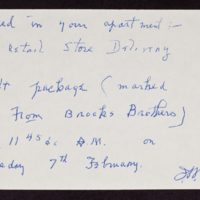 ed in your apartment :-
etail Store Delivery
package (marked
From Brooks Brothers)
11 45 A.M. on
sday 7th February.